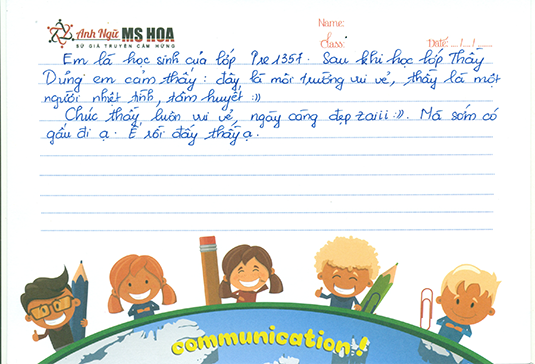 Anh Ngữ MS HOA
SỨ GIẢ TRUYỀN CẢM HỨNG
Name:
Class:
Date: .../.../...
Em là học sinh của lớp Pre 1357. Sau khi học lớp Thầy
Dũng em cảm thấy: đây là môi trường vui vẻ, thầy là một
người nhiệt tình, tâm huyết :))
Chúc thầy luôn vui vẻ, ngày càng đẹp zaiii :)). Mà sớm có
gấu đi ạ. Ế rồi đấy thầy ạ.
communication!